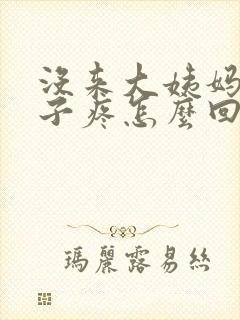 没来大姨妈
子疼怎麼回
瑪麗露易絲